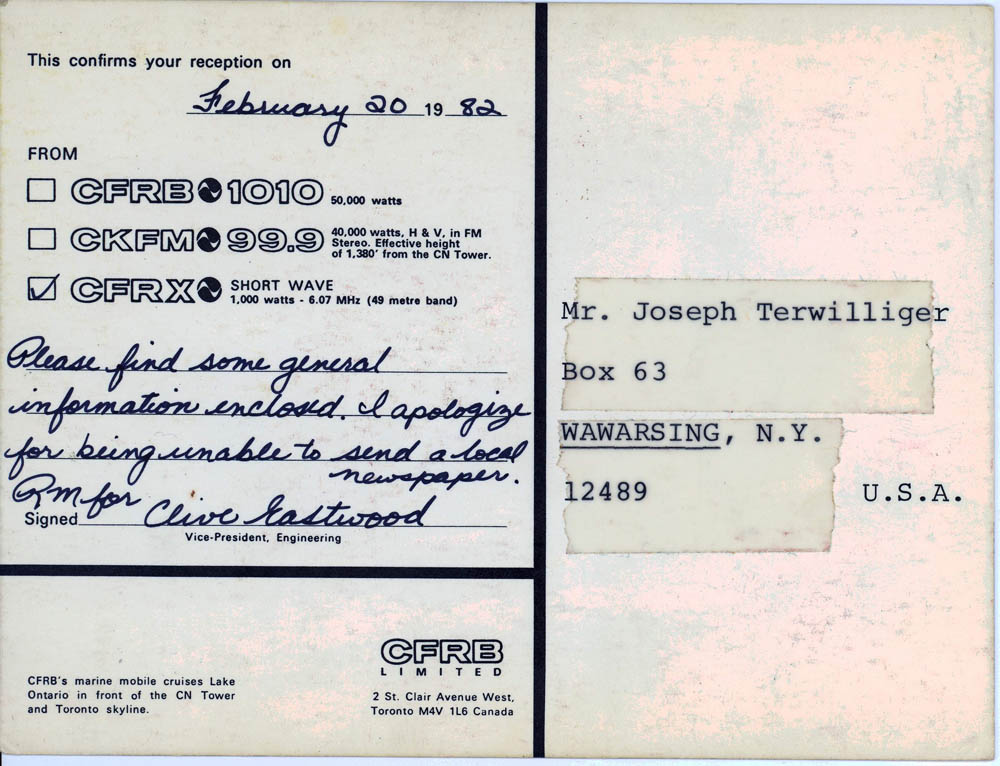 This confirms your reception on
February 20 19 82
FROM
CFRB 1010 50,000 watts
CKFM 99.9 40,000 watts, H & V, in FM
Stereo. Effective height
of 1,380' from the CN Tower.
CFRX SHORT WAVE
1,000 watts - 6.07 MHz (49 metre band)
Please find some general
information enclosed. I apologize
for being unable to send a local
newspaper.
RM for
Signed Clive Eastwood
Vice-President, Engineering
CFRB's marine mobile cruises Lake
Ontario in front of the CN Tower
and Toronto skyline.
CFRB
LIMITED
2 St. Clair Avenue West,
Toronto M4V 1L6 Canada
Mr. Joseph Terwilliger
Box 63
WAWARSING, N.Y.
12489 U.S.A.